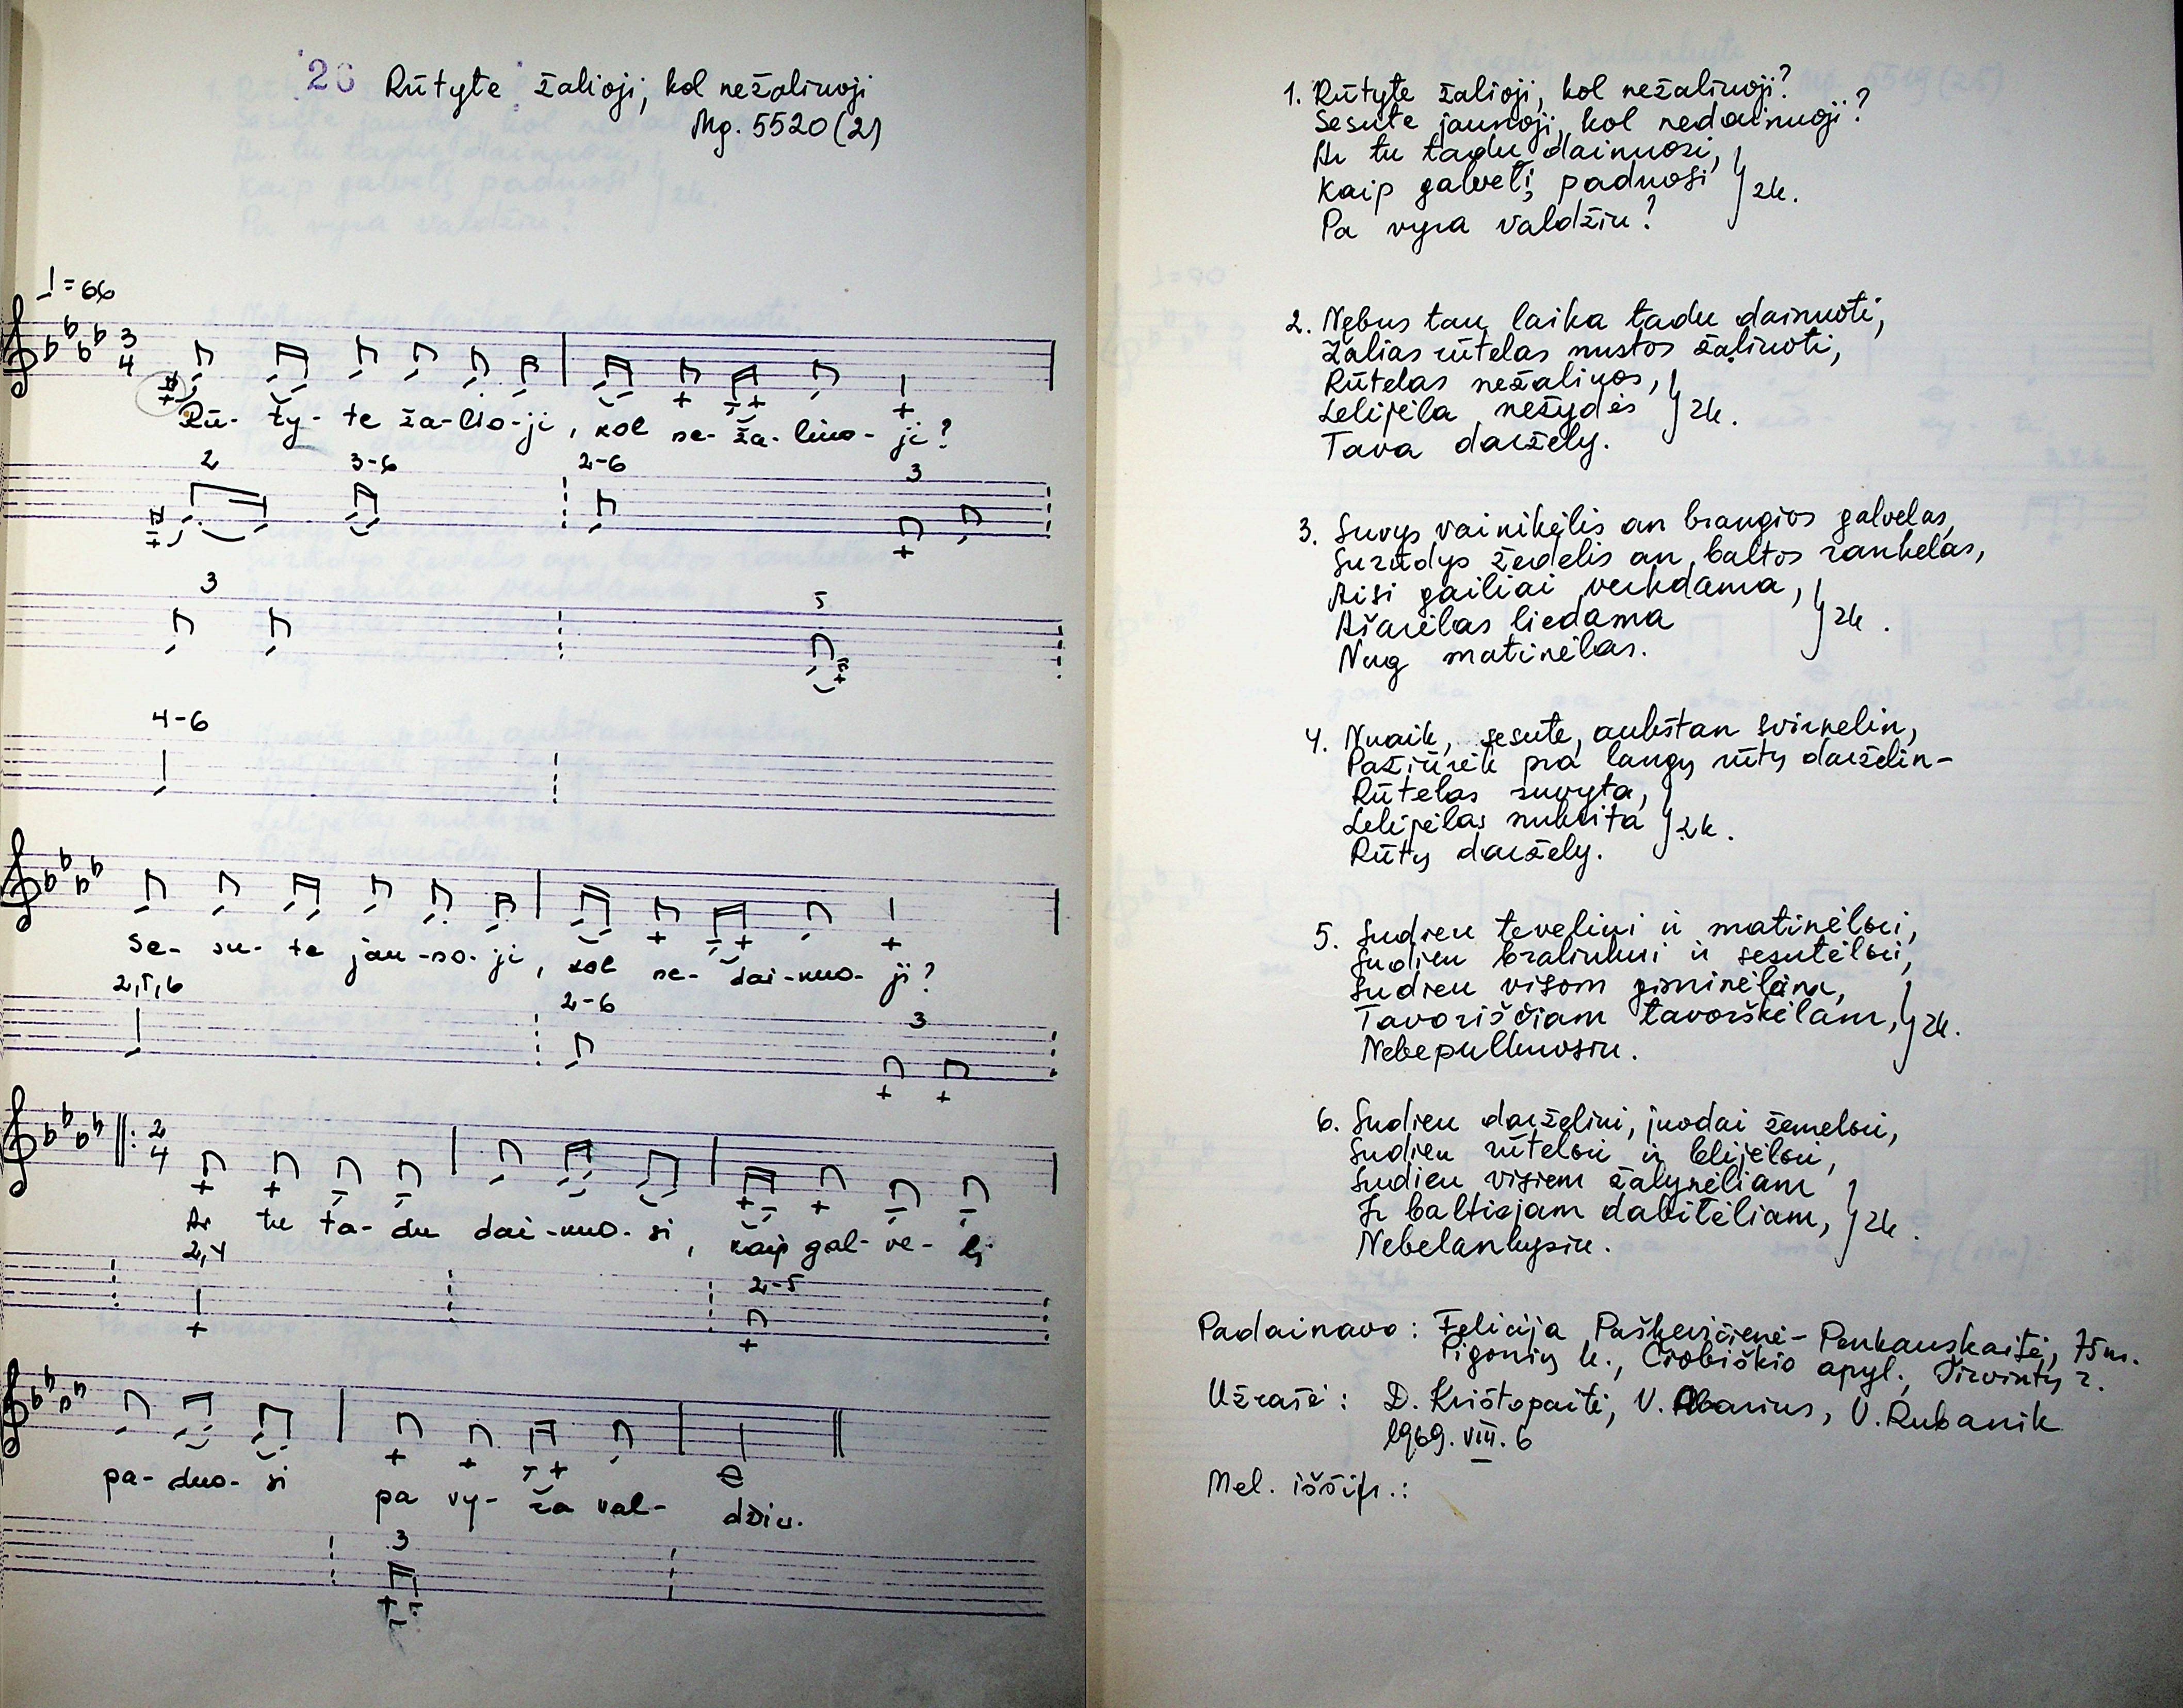 26 Rūtyte žalioji, kol nežaliuoji
Mg. 5520 (2)
♩=66
3
4
Rū- ty- te ža-lio-ji, kol ne- ža- liuo- ji?
2 3-6 2-6 3
3 5
4-6
Se- su- te jau-no-ji, kol ne- dai-nuo- ji?
2,5,6 2-6 3
2
4
Ar tu ta- du dai-nuo-si, kaip gal- ve- lį
2,4 2-5
pa- duo- si pa vy- ra val- džiu.
3
1. Rūtyte žalioji, kol nežaliuoji?
Sesute jaunoji, kol nedainuoji?
Ar tu tadu dainuosi,
Kaip galvelį paduosi } 2k.
Pa vyra valdžiu?
2. Nebus tau laika tadu dainuoti,
Žalias rūtelas nustos žaliuoti,
Rūtelas nežaliuos,
Lelijėla nežydės } 2k.
Tava daržely.
3. Suvys vainikėlis an brangios galvelas,
Surūdys žiedelis an baltos rankelas,
Aisi gailiai verkdama,
Ašarėlas liedama } 2k.
Nug matinėlas.
4. Nuaik, sesute, aukštan svirnelin,
Pažiūrėk pra langų rūtų darželin-
Rūtelas suvyta,
Lelijėlas nukrita } 2k.
Rūtų daržely.
5. Sudieu teveliui ir matinėlai,
Sudieu braliukui ir sesutėlai,
Sudieu visom giminėlėm,
Tavoriščiam tavorškėlam, } 2k.
Nebepulkuosiu.
6. Sudieu darželiui, juodai žemelai,
Sudieu rūtelai ir lelijėlai,
Sudieu visiem žalynėliam
Ir baltiejam dabitėliam, } 2k.
Nebelankysiu.
Padainavo: Felicija Paškevičienė-Penkauskaitė, 75 m.
Pigonių k., Čiobiškio apyl., Širvintų r.
Užrašė: D. Krištopaitė, V. Abarius, V. Rubanik
1969. VIII. 6
Mel. iššifr.: